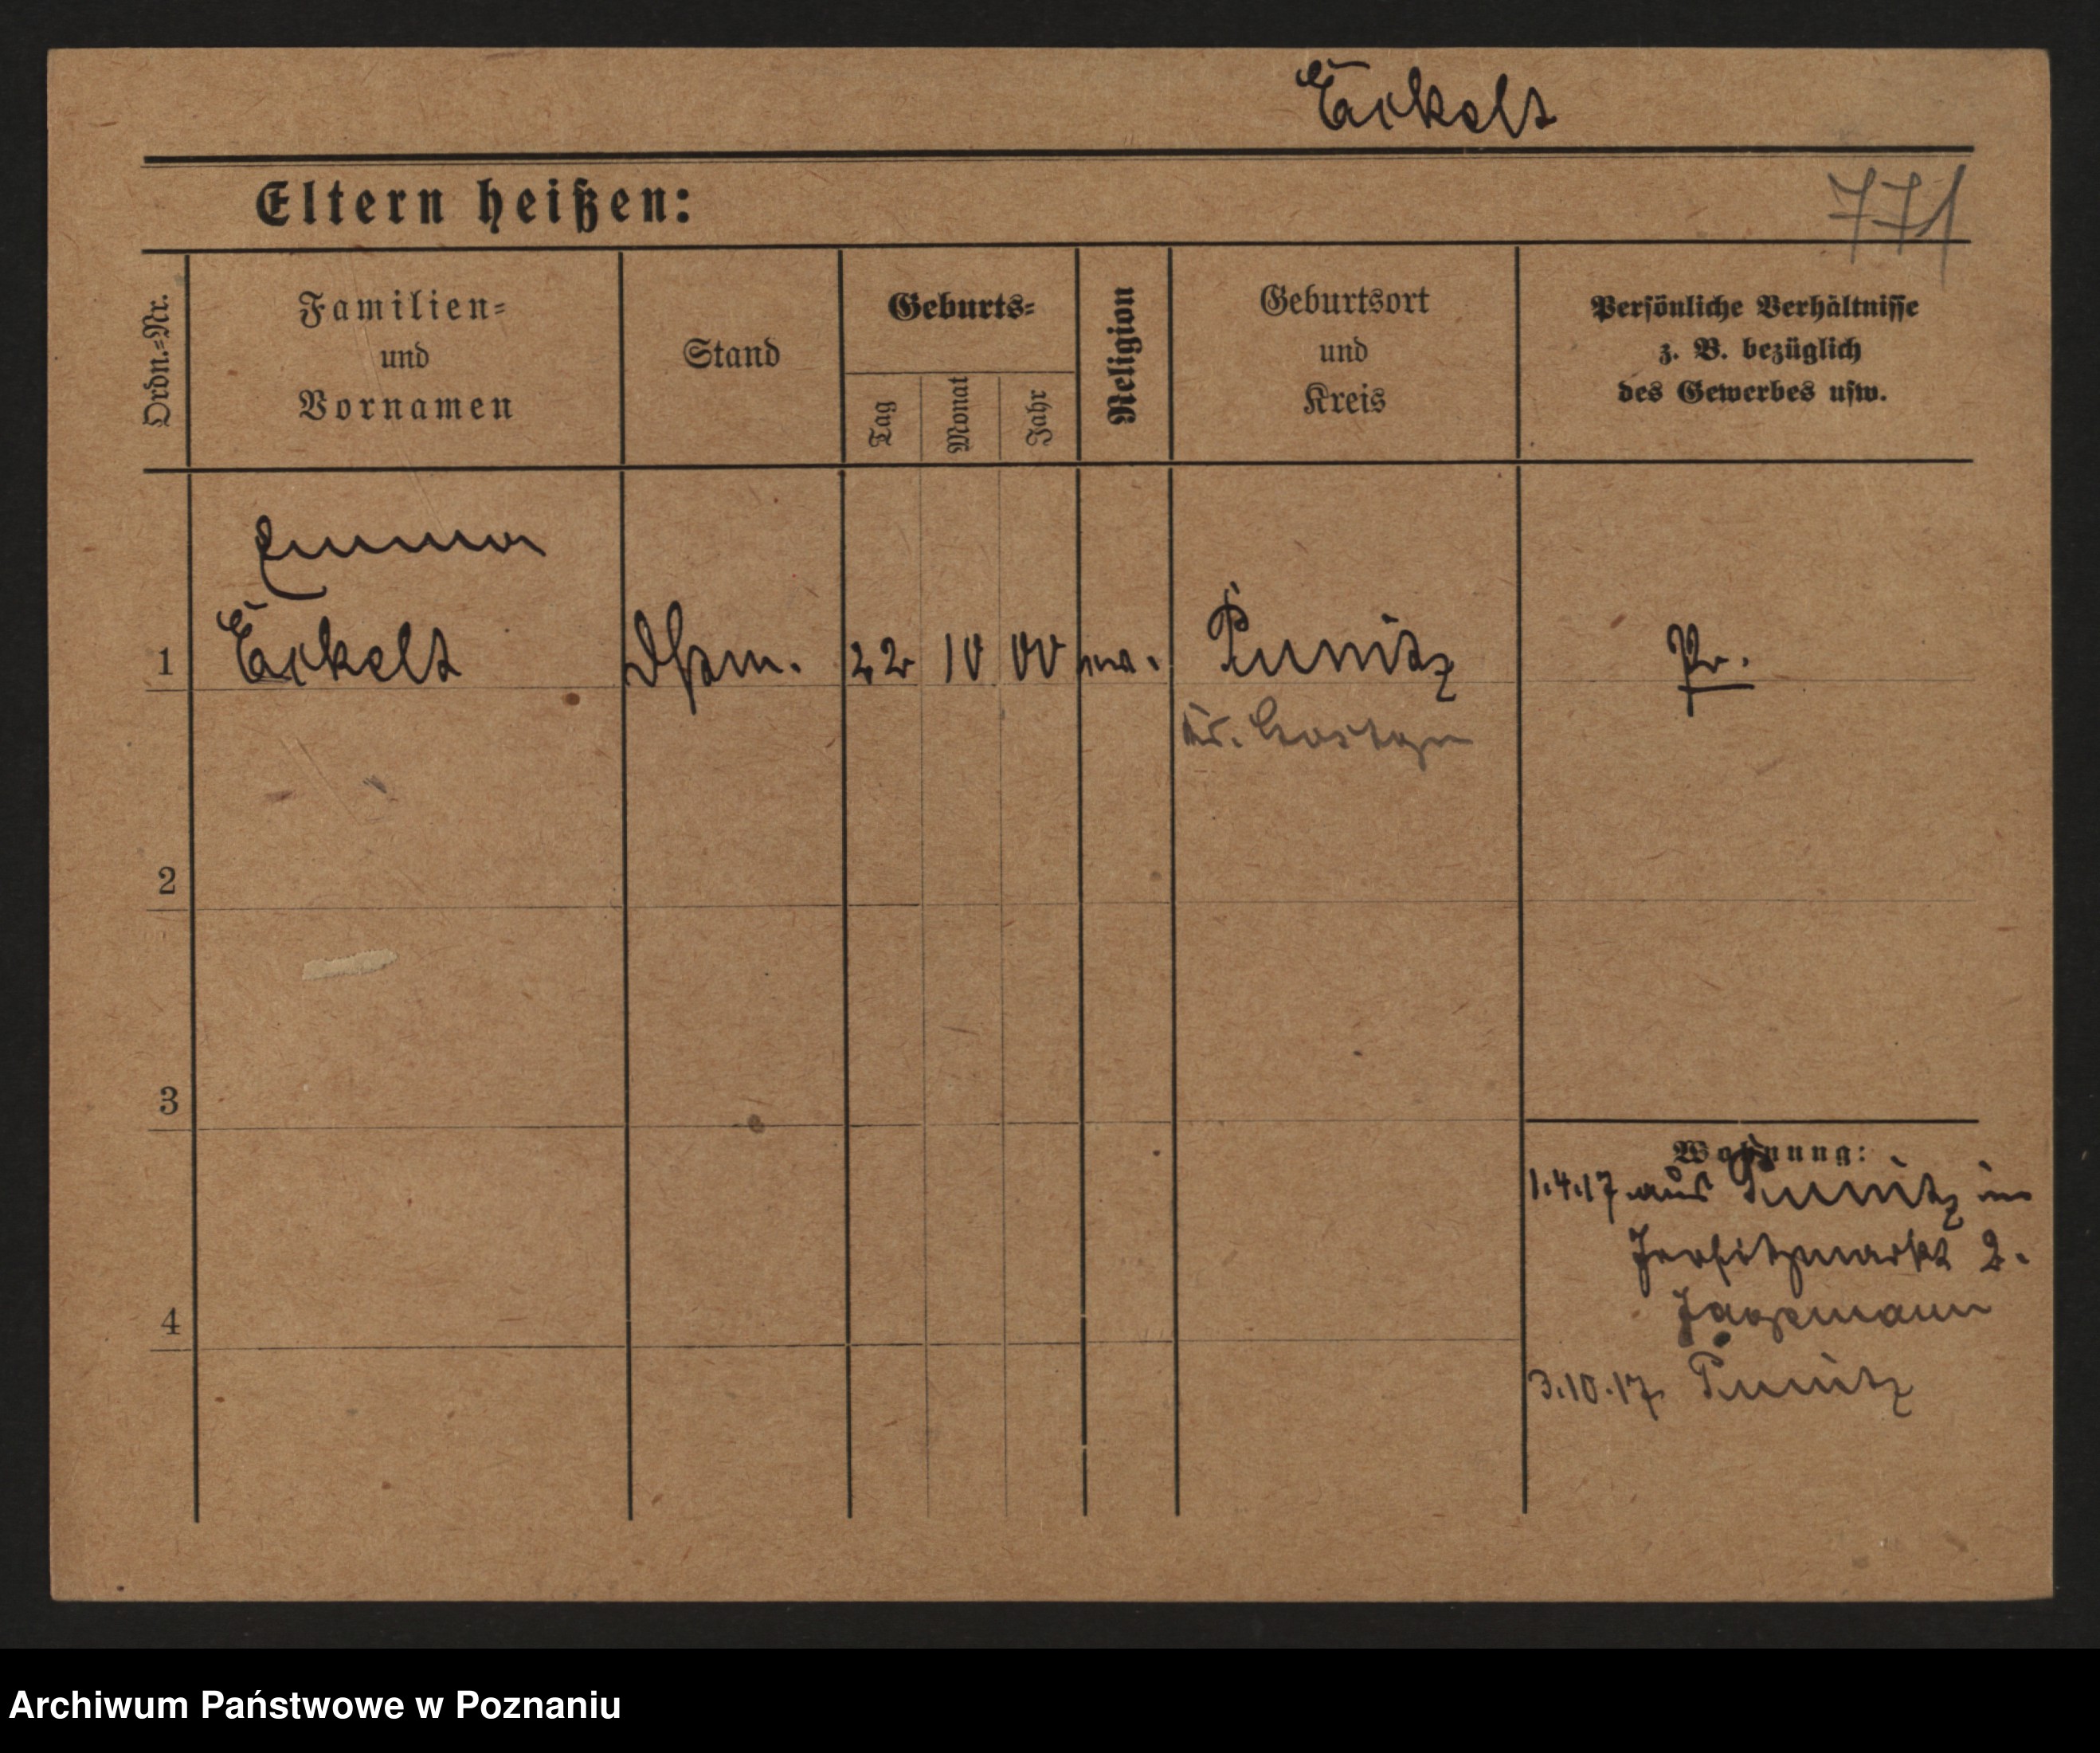 Eickelt
Eltern heißen:
771
Ordn.=Nr.
Familien=
und
Vornamen
Stand
Geburts=
Tag
Monat
Jahr
Religion
Geburtsort
und
Kreis
Persönliche Verhältnisse
z. B. bezüglich
des Gewerbes usw.
Emma
1 Eickelt 22 10 00 Punitz Pr.
Kr. Gostyn
2
3
Wohnung:
1.4.17 aus Punitz in
Jersitzmarkt 2.
4
3.10.17. Punitz
Archiwum Państwowe w Poznaniu